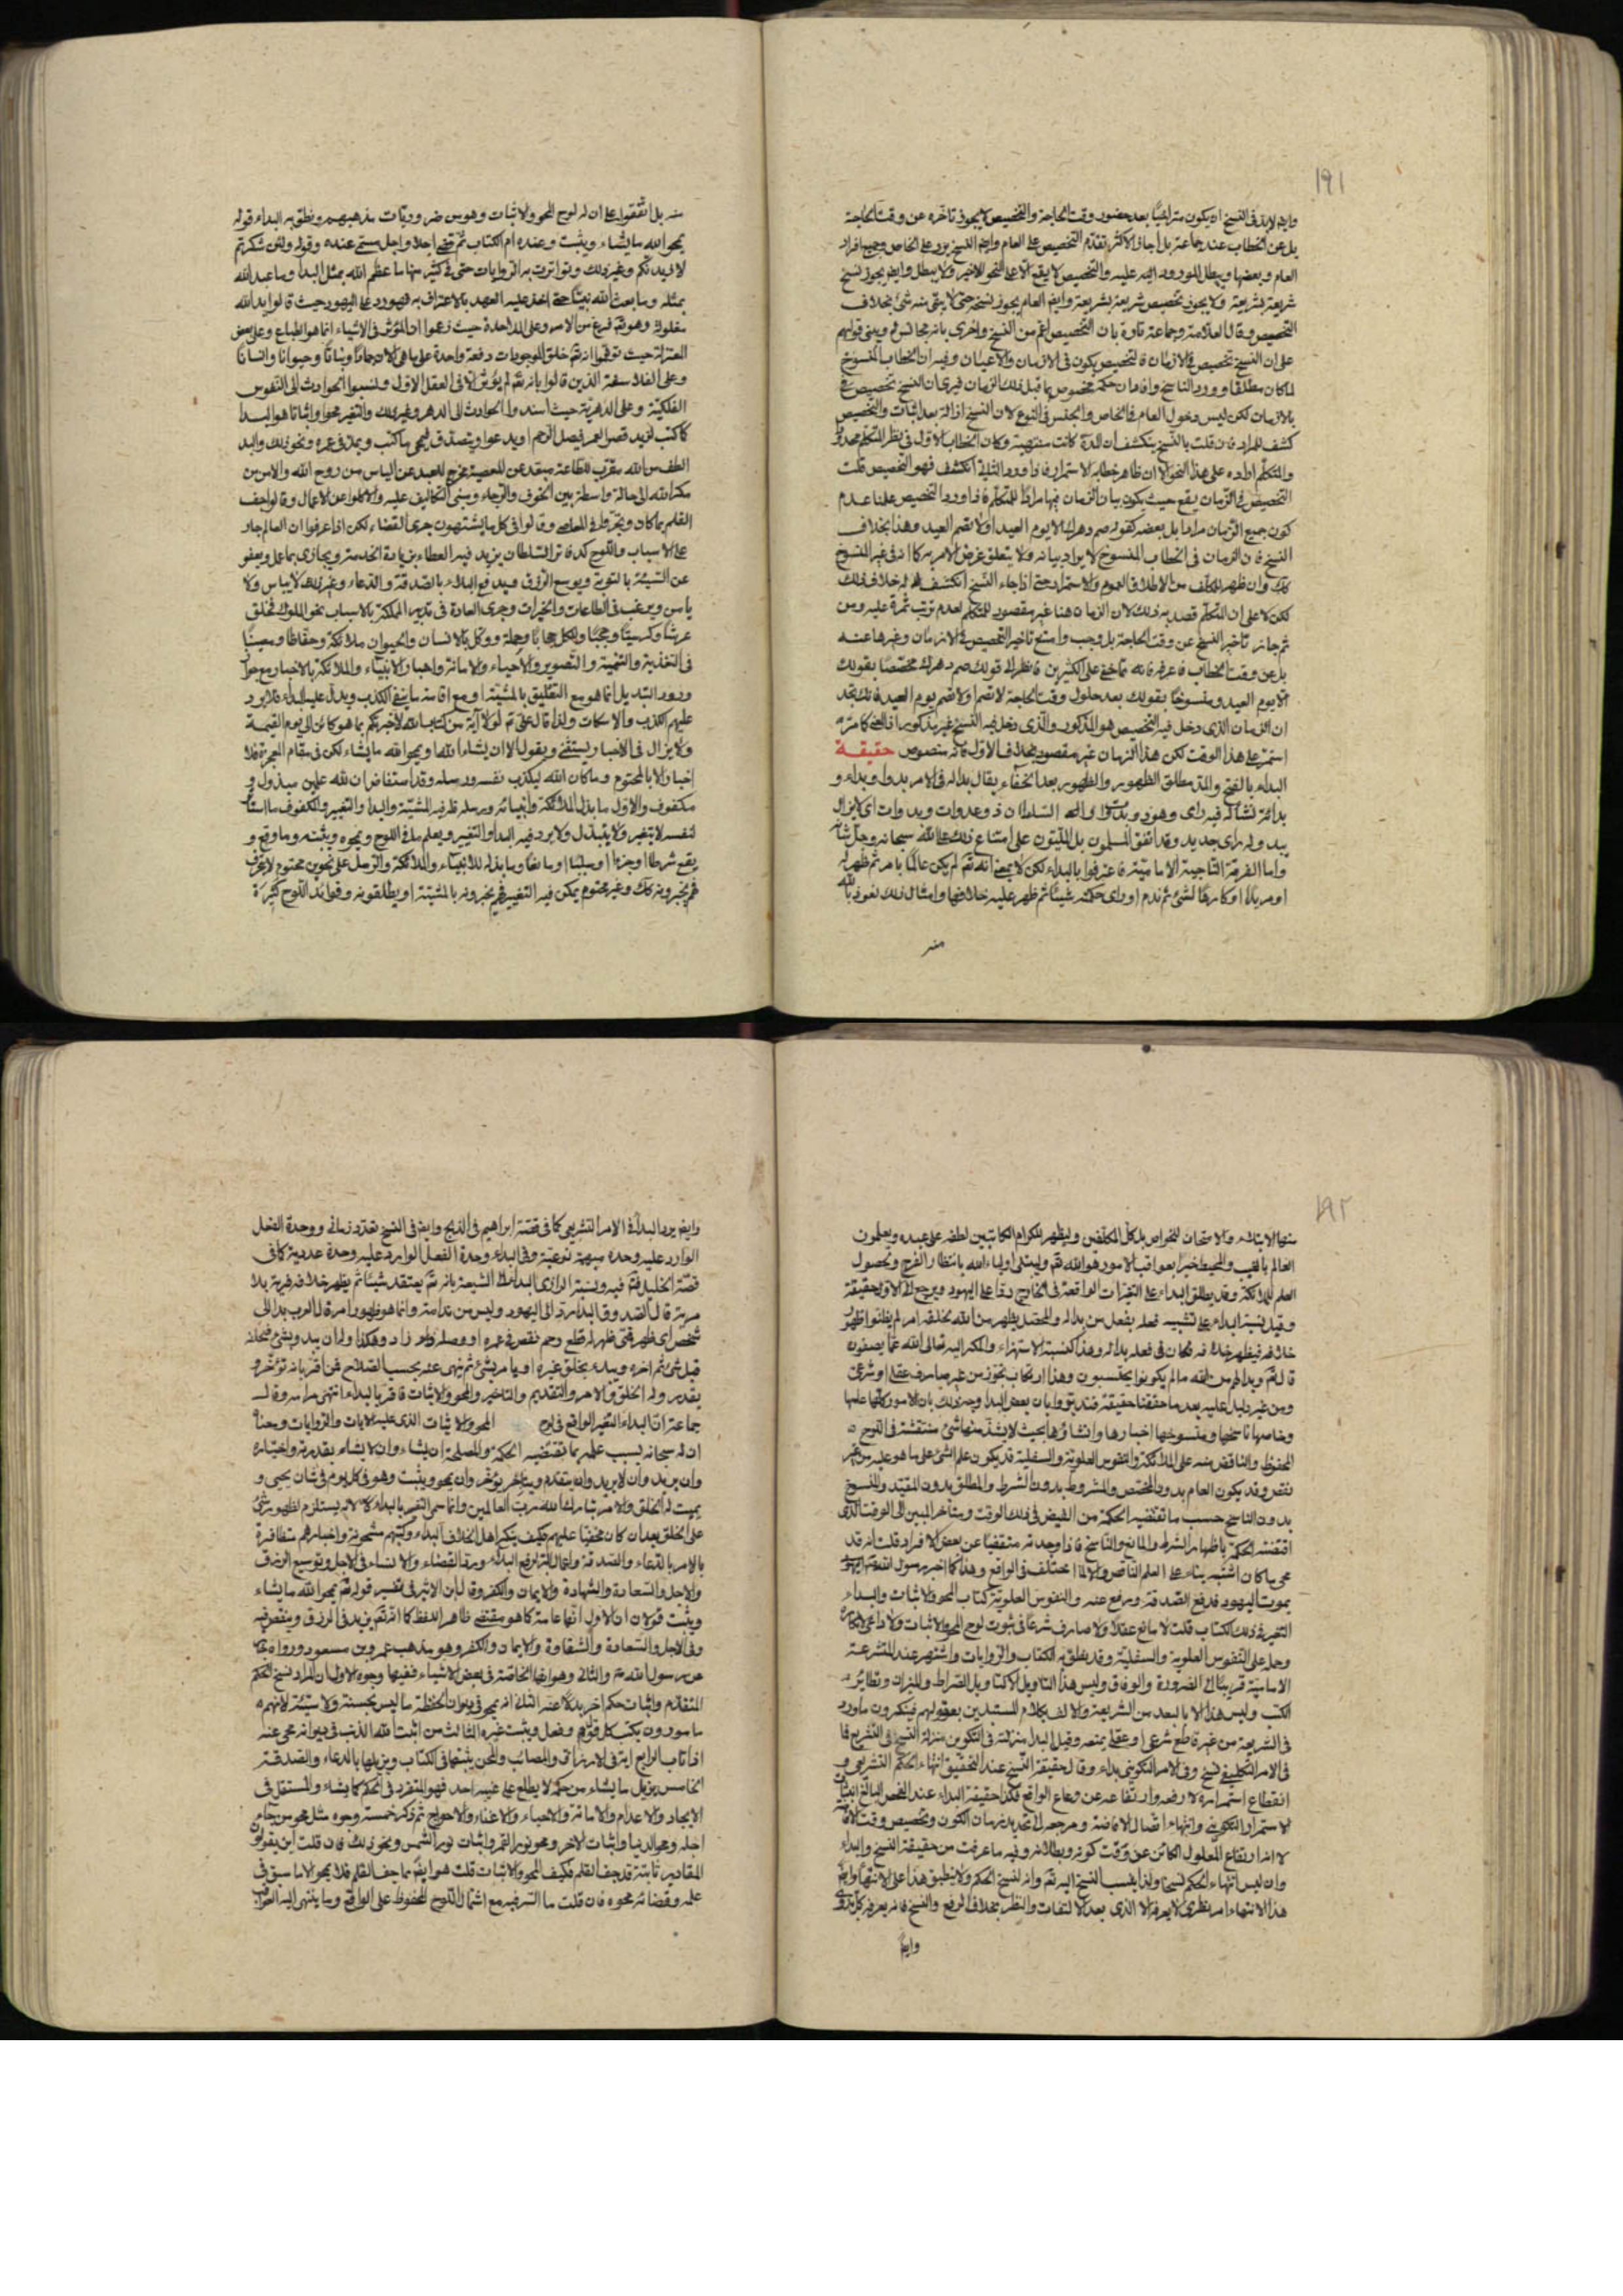 ١٩١
وايض لابد فى النسخ ان يكون متراخيًا بعد حضور وقت الحاجة والتخصيص لا يجوز تاخره عن وقت الحاجة
بل عن الخطاب عند جماعة بل اجاز الاكثر تقدّم التخصيص على العام وايض النسخ يرد على الخاص وجميع افراد
العام وبعضها ويبطل المورود اليه عليه والتخصيص لا يقع الا على النحو الاخير ولا يبطل وايض يجوز نسخ
شريعة بشريعة ولا يجوز تخصيص شريعة بشريعة وايض العام يجوز نسخه حتى لا يبقى منه شئ بخلاف
التخصيص وقال العلامة وجماعة تارة بان التخصيص اعم من النسخ واخرى بانه مجانس له وينبى قولهم
على ان النسخ تخصيص فى الازمان فالتخصيص يكون فى الازمان والاعيان وفيه ان الخطاب المنسوخ
لما كان مطلقا وورود الناسخ وافاد ان حكمه مخصوص بما قبل ذلك الزمان فيرى ان النسخ تخصيص فى
بالازمان لكن ليس دخول العام فى الخاص والجنس فى النوع لان النسخ ازالة بعد اثبات والتخصيص
كشف للمراد فان قلت بالنسخ ينكشف ان المدة كانت منتهية وكان الخطاب الاول فى نظر المتكلم محدودا
والمتكلم اراده على هذا النحو الا ان ظاهر خطابه الاستمرار فاذا ورد الثانى انكشف فهو التخصيص قلت
التخصيص فى الزمان يقع حيث يكون بيان الزمان فيها مرادًا للمتكلم فاذا ورد التخصيص علمنا عدم
كون جميع الزمان مرادا بل بعضه كقوله صم دهرك الا يوم العيد او لا تصم العيد وهذا بخلاف
النسخ فان الزمان فى الخطاب المنسوخ لا يراد بيانه ولا يتعلق غرض الامر به كما انه فى غير المنسوخ
كك وان ظهر للمكلف من الاطلاق العموم والاستمرار حتى اذا جاء النسخ انكشف له خلاف ذلك
لكن لا على ان المتكلم قصد به ذلك لان الزمان هنا غير مقصود للمتكلم لعدم ترتب ثمرة عليه ومن
ثم جاز تاخير النسخ عن وقت الحاجة بل وجب وامتنع تاخير التخصيص فى الازمان وغيرها عنه
بل عن وقت الخطاب فاعرفه فانه مما خفى على الكثيرين فانظر الى قولك صم دهرك مخصّصًا بقولك
الا يوم العيد ومنسوخًا بقولك بعد حلول وقت الحاجة لا تصم او لا تصم يوم العيد فانك تجد
ان الزمان الذى دخل فيه التخصيص هو المذكور والذى دخل فيه النسخ غير مذكور
استمر على هذا الوقت لكن هذا الزمان غير مقصود بخلاف الاول فانه منصوص حقيقة
البداء بالفتح والمد مطلق الظهور والظهور بعد الخفاء يقال بدا له فى الامر بدوا وبداء و
بداءة نشأ له فيه راى وهو ذو بدوات السلطان ذو عدوات وبدوات اى لا يزال
يبدو له راى جديد وقد اتفق المسلمون بل المليّون على امتناع ذلك على الله سبحانه وجلّ شأنه
واما الفرقة الناجية الامامية فاعترفوا بالبداء لكن لا بمعنى انه تع لم يكن عالمًا بامر ثم ظهر له
او مريدًا او كارهًا لشئ ثم ندم او راى حكمته شيئا ثم ظهر عليه خلافها وامثال ذلك نعوذ بالله
منه
منه بل اتفقوا على ان له لوح المحو والاثبات وهو من ضروريّات مذهبهم ونطق به البداء قوله
يمحو الله ما يشاء ويثبت وعنده ام الكتاب ثم قضى اجلا واجل مسمّى عنده وقوله ولئن شكرتم
لازيدنّكم وغير ذلك وتواترت به الروايات حتى فى كثير منها ما عظم الله بمثل البداء وما عبد الله
بمثله وما بعث الله نبيّا حتى اخذ عليه العهد بالاعتراف به فهو رد على اليهود حيث قالوا يد الله
مغلولة وهو تع فرغ من الامر وعلى الملاحدة حيث زعموا ان المؤثر فى الاشياء انما هو الطباع وعلى بعض
المعتزلة حيث توهموا انه تع خلق الموجودات دفعة واحدة على ما هى الان جمادًا ونباتًا وحيوانا وانسانا
وعلى الفلاسفة الذين قالوا بانه تع لم يؤثر الا فى العقل الاول ونسبوا الحوادث الى النفوس
الفلكيّة وعلى الدهرية حيث اسندوا الحوادث الى الدهر وغير ذلك والتغير محوا واثباتا هو البداء
كما كتب لزيد قصر العمر فيصل الرحم او يدعو او يتصدّق فيمحى ما كتب ويمدّ فى عمره ونحو ذلك والبداء
الطف من الله مقرّب للطاعة مبعّد عن المعصية مخرج للعبد عن الياس من روح الله والامن من
مكر الله الى حالة واسطة بين الخوف والرجاء ومبنى التكاليف عليه والا لاتكلوا عن الاعمال وقالوا جف
القلم بما كان وتجرؤا فى المعاصى وقالوا فى كل ما يشتهون جرى القضاء لكن اذا عرفوا ان العالم جار
على الاسباب واللوح كدفاتر السلطان يزيد فيه العطاء بزيادة الخدمة ويجازى بما عمل ويعفو
عن السيّئة بالتوبة ويوسع الرزق ويدفع البلاء بالصدقة والدعاء وغير ذلك لا ييأس ولا
يامن ويرغب فى الطاعات والخيرات وجرى العادة فى تدبير المملكة بالاسباب نحو الملوك فخلق
عرشا وكرسيّا وحجبًا ولكل حجابًا وحملة ووكّل بالانسان والحيوان ملائكة وحفاظا ومعينًا
فى التغذية والتنمية والتصوير والاحياء والاماتة واخبار الانبياء والملائكة بالاخبار مع جواز
ورود التبديل انما هو مع التعليق بالمشيّة او مع اقامة ما ينفى الكذب ويدل على البداء فلا يرد
عليهم الكذب والاسكات ولذا قال على ع لولا آية من كتاب الله لاخبرتكم بما هو كائن الى يوم القيمة
ولا يزال فى الاخبار يستثنى ويقول الا ان يشاء الله او يمحو الله ما يشاء لكن فى مقام المعجزة فلا
اخبار الا بالمحتوم وما كان الله ليكذب نفسه ورسله وقد استفاض ان لله علمين مبذول و
مكفوف والاول ما بذل لملائكته وانبيائه ورسله ظرفيه المشيّة والبداء والتغيير والمكفوف ما استاثر
لنفسه لا يتغير ولا يتبدّل ولا يرد فيه البداء والتغيير ويعلم ما فى اللوح ويمحوه ويثبته وما وقع و
يقع شرطا او جزءا او سببًا او مانعًا وما بذله للانبياء والملائكة والرسل على نحوين محتوم لا يتغير
فهم يخبرونه كك وغير محتوم يمكن فيه التغيير فهم يخبرونه بالمشيّة او يطلقونه وفوائد اللوح كثيرة
١٩٢
منها الابتلاء والامتحان للخواص بل كل المكلّفين وليظهر للكرام الكاتبين لطفه على عبده ويعلمون
العالم بالغيب والمحيط خبرا بعواقب الامور هو الله تع وليبتلى اولياء الله بانتظار الفرج وتحصول
العلم للملائكة وقد يطلق البداء على التغيرات الواقعة فى الخارج ردّا على اليهود ويرجع الى الاول حقيقة
وقيل نسبة البداء على تشبيه فعله بفعل من بدا له والمحصّل يظهر من الله بخلقه امر لم يظنوا ظهوره
خلافه فيظهر خلافه فكان فى فعله بدا له وهذا كنسبة الاستهزاء والمكر اليه تعالى الله عما يصفون
قال تع وبدا لهم من الله ما لم يكونوا يحتسبون وهذا ارتكاب تجوّز من غير صارف عقلى او شرعى
ومن غير دليل عليه بعد ما حققنا حقيقته فتدبّر وايان بعض البداء وجرى ذلك بان الامور كلّها عامّها
وخاصها ناسخها ومنسوخها اخبارها وانشاؤها بحيث لا يشذ منها شئ منتقشة فى اللوح
المحفوظ والفائض منه على الملائكة والنفوس العلوية والسفلية قد يكون علم الشئ على ما هو عليه من غير
نقص وقد يكون العام بدون المختص والمشروط بدون الشرط والمطلق بدون المقيّد والمنسوخ
بدون الناسخ حسب ما تقتضيه الحكمة من الفيض فى ذلك الوقت ويتاخر المبين الى الوقت الذى
اقتضته الحكمة باظهار الشرط والمانع والناسخ فاذا وجدته منقضيًا عن بعض الافراد قلت انه قد
محى ما كان اثبته بناء على العلم الناقص والا لما اختلف فى الواقع وهذا كما اخبر رسول الله
بموت اليهود فدفع الصدقة ومرفع عنه والنفوس العلوية كتاب المحو والاثبات والبداء
التغير فى ذلك الكتاب قلت لا مانع عقلا ولا صارف شرعًا فى ثبوت لوح المحو والاثبات ولا داعى
وحمله على النفوس العلوية والسفليّة وقد نطق به الكتاب والروايات واشتهر عند المتشرعة
الامامية قريبًا الى الضرورة والوفاق وليس هذا التاويل الا كتاويل الصراط والميزان وتطاير
الكتب وليس هذا الا بالبعد من الشريعة والالف بكلام المستبدّين بعقولهم فينكرون ما ورد
فى الشريعة من غير قاطع شرعى او عقلى يمنعه وقيل البداء منزلته فى التكوين منزلة النسخ فى التشريع فما
فى الامر التكليفى نسخ وفى الامر التكوينى بداء وقال حقيقة النسخ عند التحقيق انتهاء الحكم التشريعى و
انقطاع استمراره لا رفعه وارتفاعه عن وعاء الواقع فكذا حقيقة البداء عند الفحص البالغ
لاستمرار التكوينى وانتهاء اتصال الافاضة ومرجعه الى تحديد زمان الكون وتخصيص وقت الافاضة
لا انه ارتفاع المعلول الكائن عن وقت كونه وبطلانه وفيه ما عرفت من حقيقة النسخ والبداء
وان ليس انتهاء الحكم نسخا ولذا ينسب النسخ اليه تع وانه نسخ الحكم ولا ينطبق هذا على الانتهاء وايض
هذا الانتهاء امر نظرى لا يعرفه الا الذى بعد الالتفات والنظر بخلاف الرفع والنسخ فانه يعرفه كل
وايض
وايض يرد البداء فى الامر التشريعى كما فى قصّة ابراهيم فى الذبح وايض فى النسخ تعدّد زمانى ووحدة الفعل
الوارد عليه وحدة مبهمة نوعية وفى البداء وحدة الفعل الوارد عليه وحدة عددية كما فى
قصّة الخليل ع فيه ونسبة الرازى البداء الى الشيعة بانه تع يعتقد شيئا ثم يظهر خلافه فرية بلا
مرية قال الصدوق البداء رد الى اليهود وليس من ندامة وانما هو ظهور امر قال العرب بدا لى
شخص اى ظهر فمتى ظهر له قطع رحم نقص فى عمره او وصله زاد وهكذا وله ان يبدء بشئ فيجعله
قبل شئ ثم اخره ويبدء بخلق غيره او يامر بشئ ثم ينهى عنه بحسب الصلاح فمن اقرّ بانه يؤخّر و
يقدر وله الخلق والامر والتقديم والتاخير والمحو والاثبات فاقر بالبداء انتهى مرامه وقال
جماعة ان البداء التغير الواقع فى لوح المحو والاثبات الذى عليه الايات والروايات ومعناه
ان له سبحانه بسبب علمه بما تقتضيه الحكمة والمصلحة ان يشاء وان لا يشاء بقدرته واختياره
وان يريد وان لا يريد وان يتقدم ويتاخر يؤخّر وان يمحو ويثبت وهو فى كل يوم فى شان يحيى و
يميت له الخلق والامر تبارك الله رب العالمين وانما سمى التغير بالبداء لانه يستلزم لظهور شئ
على الخلق بعد ان كان مخفيّا عليهم فكيف ينكر اهل الخلاف البداء وكتبهم مشحونة واخبارهم متظافرة
بالامر بالدعاء والصدقة واعمال البر لرفع البلاء ورد القضاء والانساء فى الاجل وتوسيع الرزق
والاجل والسعادة والشهادة والايمان والكفر وقال ابن الاثير فى تفسير قوله تع يمحو الله ما يشاء
ويثبت قولان الاول انها عامة كما هو مقتضى ظاهر اللفظ كما انه تع يزيد فى الرزق وينقص فيه
وفى الاجل والسعادة والشقاوة والايمان والكفر وهو مذهب عمر وبن مسعود ورواه
عن رسول الله ص والثانى وهو انها الخاصّة فى بعض الاشياء ففيها وجوه الاول ان المراد نسخ الحكم
المتقدّم واثبات حكم اخر بدلا عنه الثانى انه يمحو فى ديوان الحفظة ما ليس بحسنة ولا سيّئة لانهم
مامورون بكتب كل قول وفعل ويثبت غيره الثالث من اثبت الله الذنب فى ديوانه محى عنه
اذا تاب الرابع انه فى الارزاق والمصائب والمحن يثبتها فى الكتاب ويزيلها بالدعاء والصدقة
الخامس يزيل ما يشاء من حكمه لا يطلع على غيبه احد فهو المتفرد فى الحكم كما يشاء والمستقل فى
الايجاد والاعدام والاماتة والاحياء والاغناء والاحواج ثم ذكر خمسة وجوه مثل محو من جاء
اجله ومحو الدنيا واثبات الاخر ومحو نور القمر واثبات نور الشمس ونحو ذلك فان قلت اين يقولون
المقادير ثابتة قد جف القلم فكيف المحو والاثبات قلت هو ايض مما جف القلم فلا يمحو الا ما سبق فى
علمه وقضائه محوه فان قلت ما السر فيه مع اشتمال اللوح المحفوظ على الواقع وما ينتهى اليه